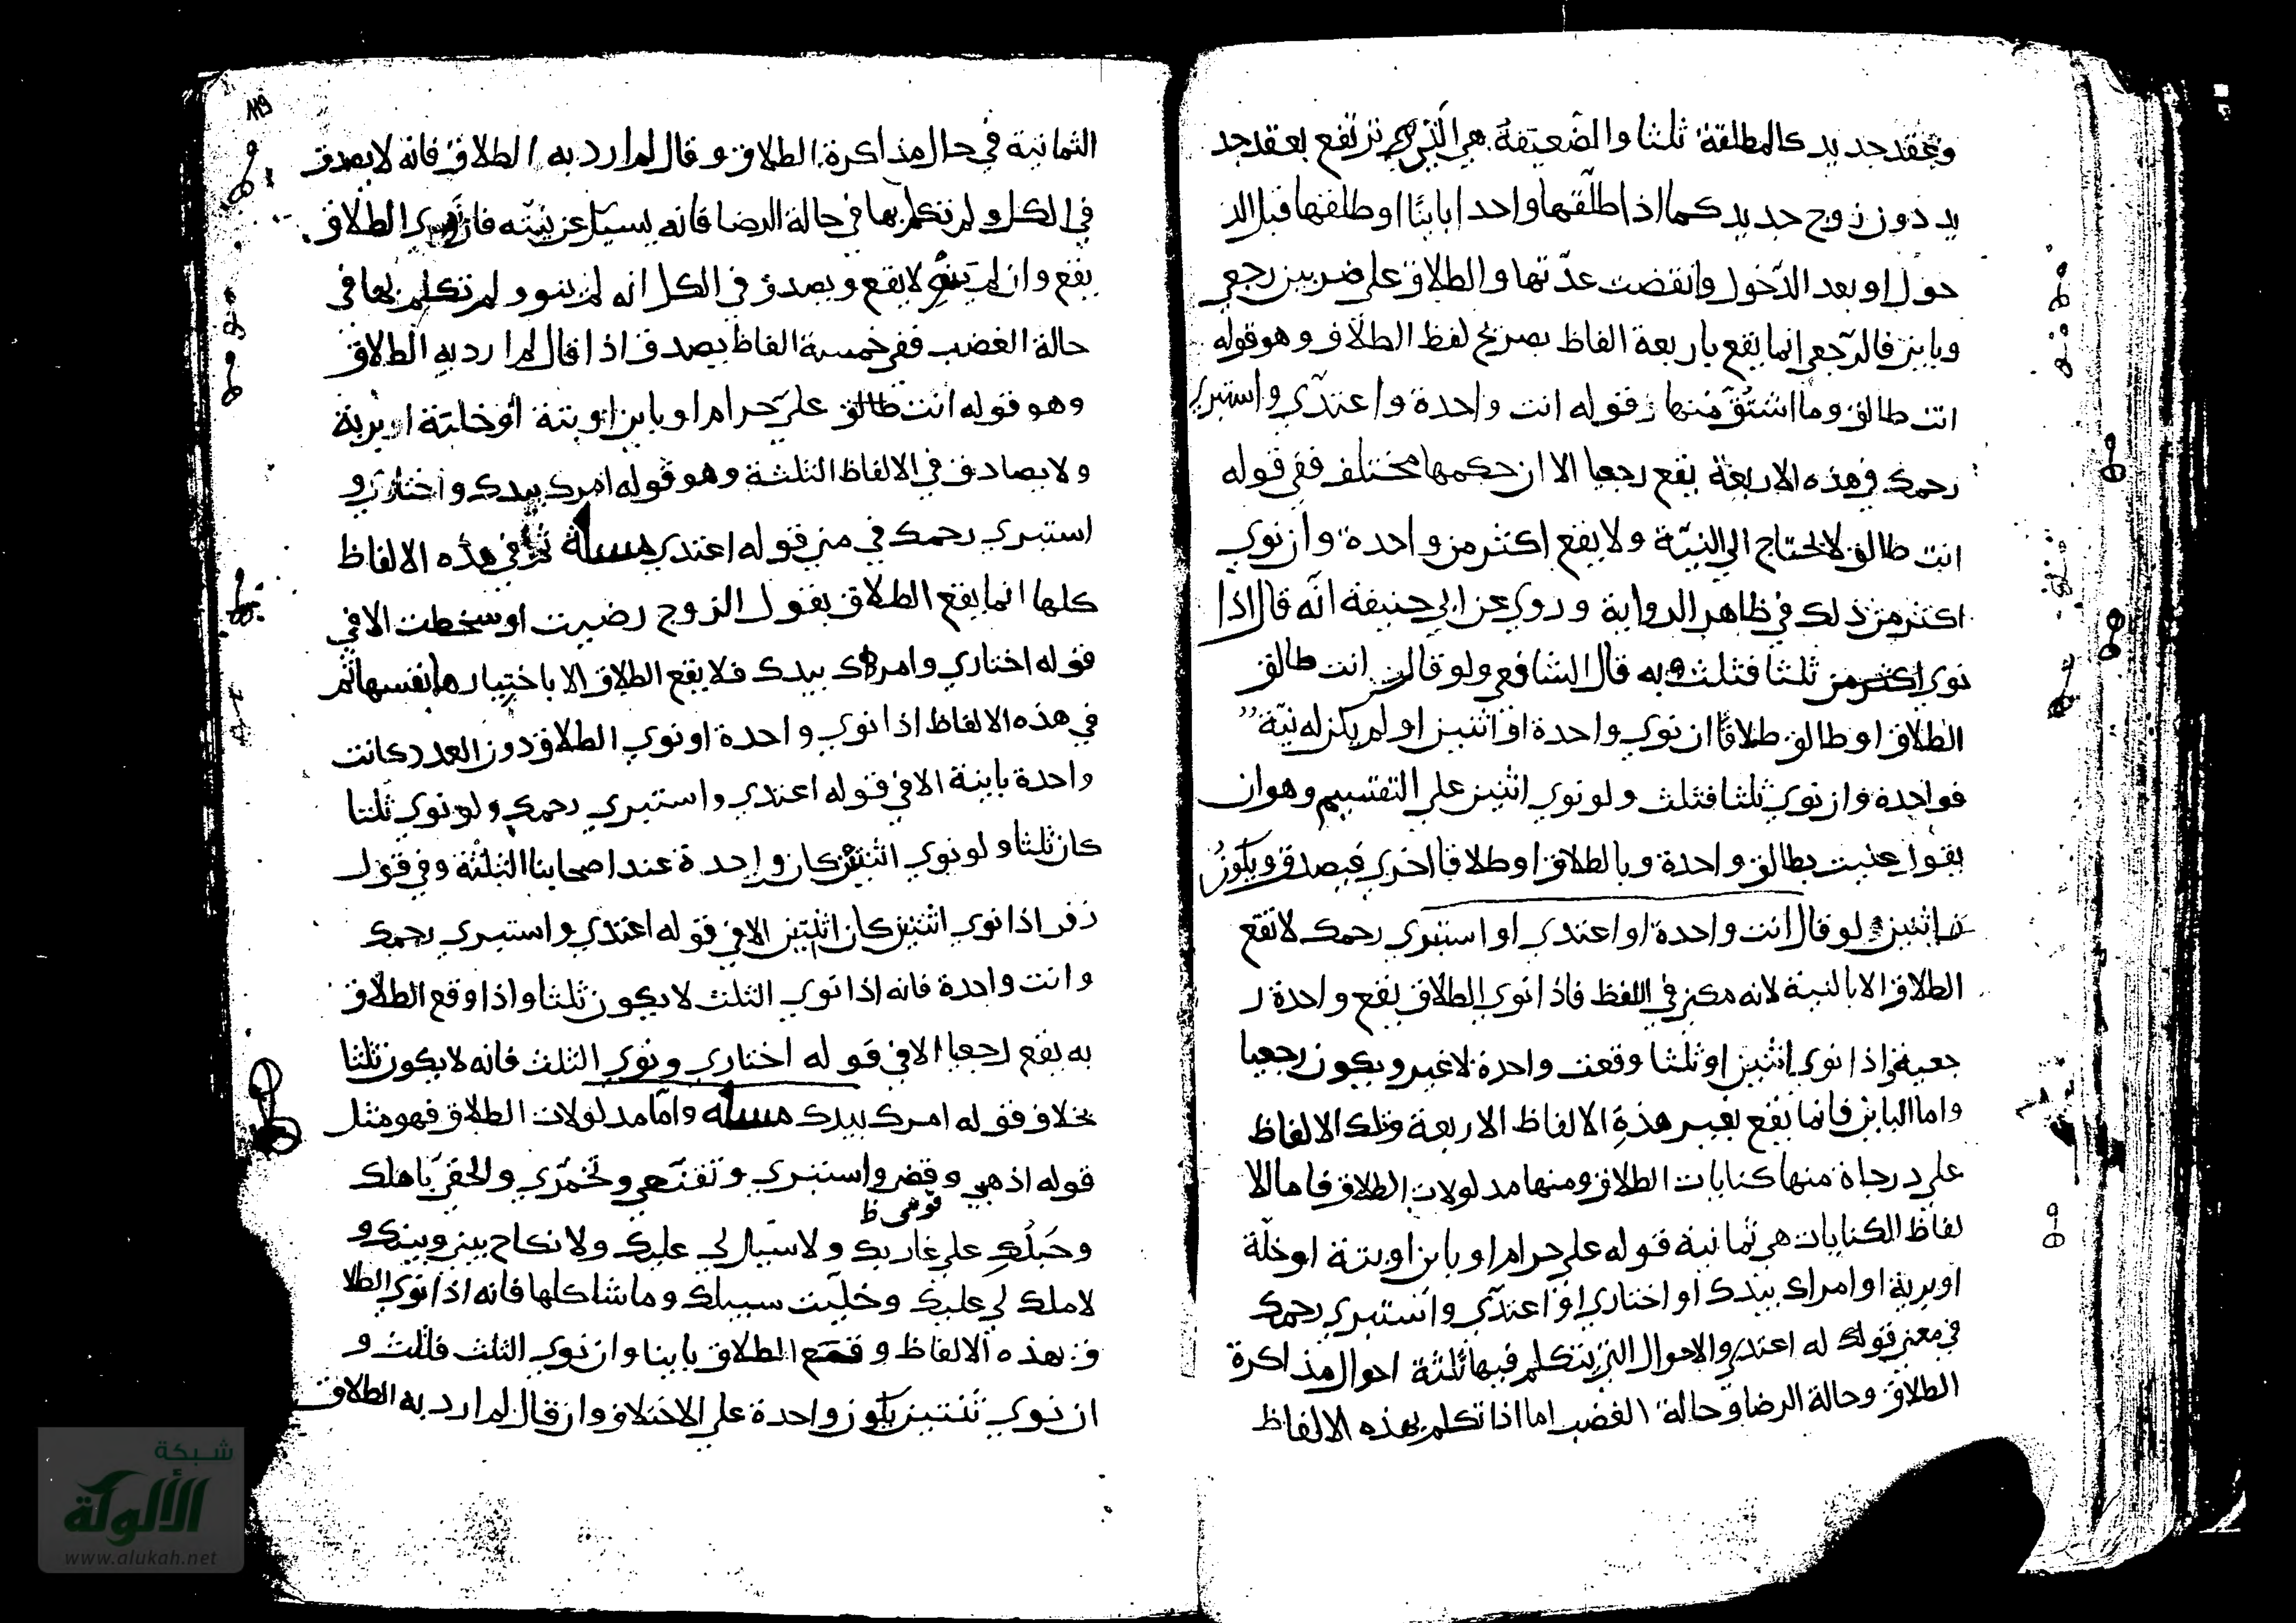 وبعقد جديد كالمطلقة ثلثا والضعيفة هي التي ترتفع بعقد جد
يد دون زوج جديد كما اذا طلقها واحدا باينا او طلقها قبل الد
خول او بعد الدخول وانقضت عدتها والطلاق على ضربين رجعي
وباين فالرجعي انما يقع باربعة الفاظ بصريح لفظ الطلاق وهو قوله
انت طالق وما اشتق منها وقوله انت واحدة واعتدي واستبري
رحمك في هذه الاربعة يقع رجعيا الا ان حكمها مختلف ففي قوله
انت طالق لا يحتاج الي النية ولا يقع اكثر من واحدة وان نوي
اكثر من ذلك في ظاهر الرواية وروي عن ابي حنيفة انه قال اذا
نوي اكثر من ثلثا فثلث وبه قال الشافعي ولو قال انت طالق
الطلاق او طالق طلاقا ان نوي واحدة او اثنين او لم يكن له نية
فواحدة وان نوي ثلثا فثلث ولو نوي اثنين علي التقسيم وهو ان
يقول عنيت بطالق واحدة وبالطلاق او طلاقا اخري فيصدق ويكون
اثنين ولو قال انت واحدة او اعتدي او استبري رحمك لا تقع
الطلاق الا بالنية لانه مكنى في اللفظ فاذا نوي الطلاق يقع واحدة ر
جعية واذا نوي اثنين او ثلثا وقعت واحدة لا غير ويكون رجعيا
واما الباين فانما يقع بغير هذه الالفاظ الاربعة وتلك الالفاظ
علي درجاة منها كنايات الطلاق ومنها مدلولات الطلاق فاما الا
لفاظ الكنايات هي ثمانية قوله علي حرام او باين او بتة او خلية
او برية او امراك بيدك او اختاري او اعتدي واستبري رحمك
في معني قولك له اعتدي والاحوال التي يتكلم فيها ثلثة احوال مذاكرة
الطلاق وحالة الرضا وحالة الغضب اما اذا تكلم بهذه الالفاظ
119
الثمانية في حال مذاكرة الطلاق وقال لم ارد به الطلاق فانه لا يصدق
في الكل ولم تكلم بها في حالة الرضا فانه يسيل عن نيته فان نوي الطلاق
يقع وان لم ينو لا يقع ويصدق في الكل انه لم ينو ولم تكلم بها في
حالة الغضب ففي خمسة الفاظ يصدق اذا قال لم ارد به الطلاق
وهو قوله انت طالق علي حرام او باين او بتة او خلية او برية
ولا يصادق في الالفاظ الثلثة وهو قوله امرك بيدك واختاري و
استبري رحمك في معني قوله اعتدي مسلة ثم في هذه الالفاظ
كلها انما يقع الطلاق بقول الزوج رضيت او سخطت الا في
قوله اختاري وامرك بيدك فلا يقع الطلاق الا باختيارها نفسها ثم
في هذه الالفاظ اذا نوي واحدة او نوي الطلاق دون العدد كانت
واحدة باينة الا في قوله اعتدي واستبري رحمك ولو نوي ثلثا
كان ثلثا ولو نوي اثنتين كان واحدة عند اصحابنا الثلثة وفي قول
زفر اذا نوي اثنتين كان اثنتين الا في قوله اعتدي واستبري رحمك
وانت واحدة فانه اذا نوي الثلث لا يكون ثلثا واذا وقع الطلاق
به يقع رجعيا الا في قوله اختاري ونوي الثلث فانه لا يكون ثلثا
بخلاف قوله امرك بيدك مسلة واما مدلولات الطلاق فهو مثل
قوله اذهبي وقومي واستتري وتقنعي وتخمري والحقي باهلك
قومي ظ
وحبلك علي غاربك ولا سبيل لي عليك ولا نكاح بيني وبينك و
لا ملك لي عليك وخليت سبيلك وما شاكلها فانه اذا نوي الطلا
ق بهذه الالفاظ وقع الطلاق باينا وان نوي الثلث فثلث و
ان نوي ثنتين يكون واحدة علي الاختلاف وان قال لم ارد به الطلاق
شبكة
الألوكة
www.alukah.net